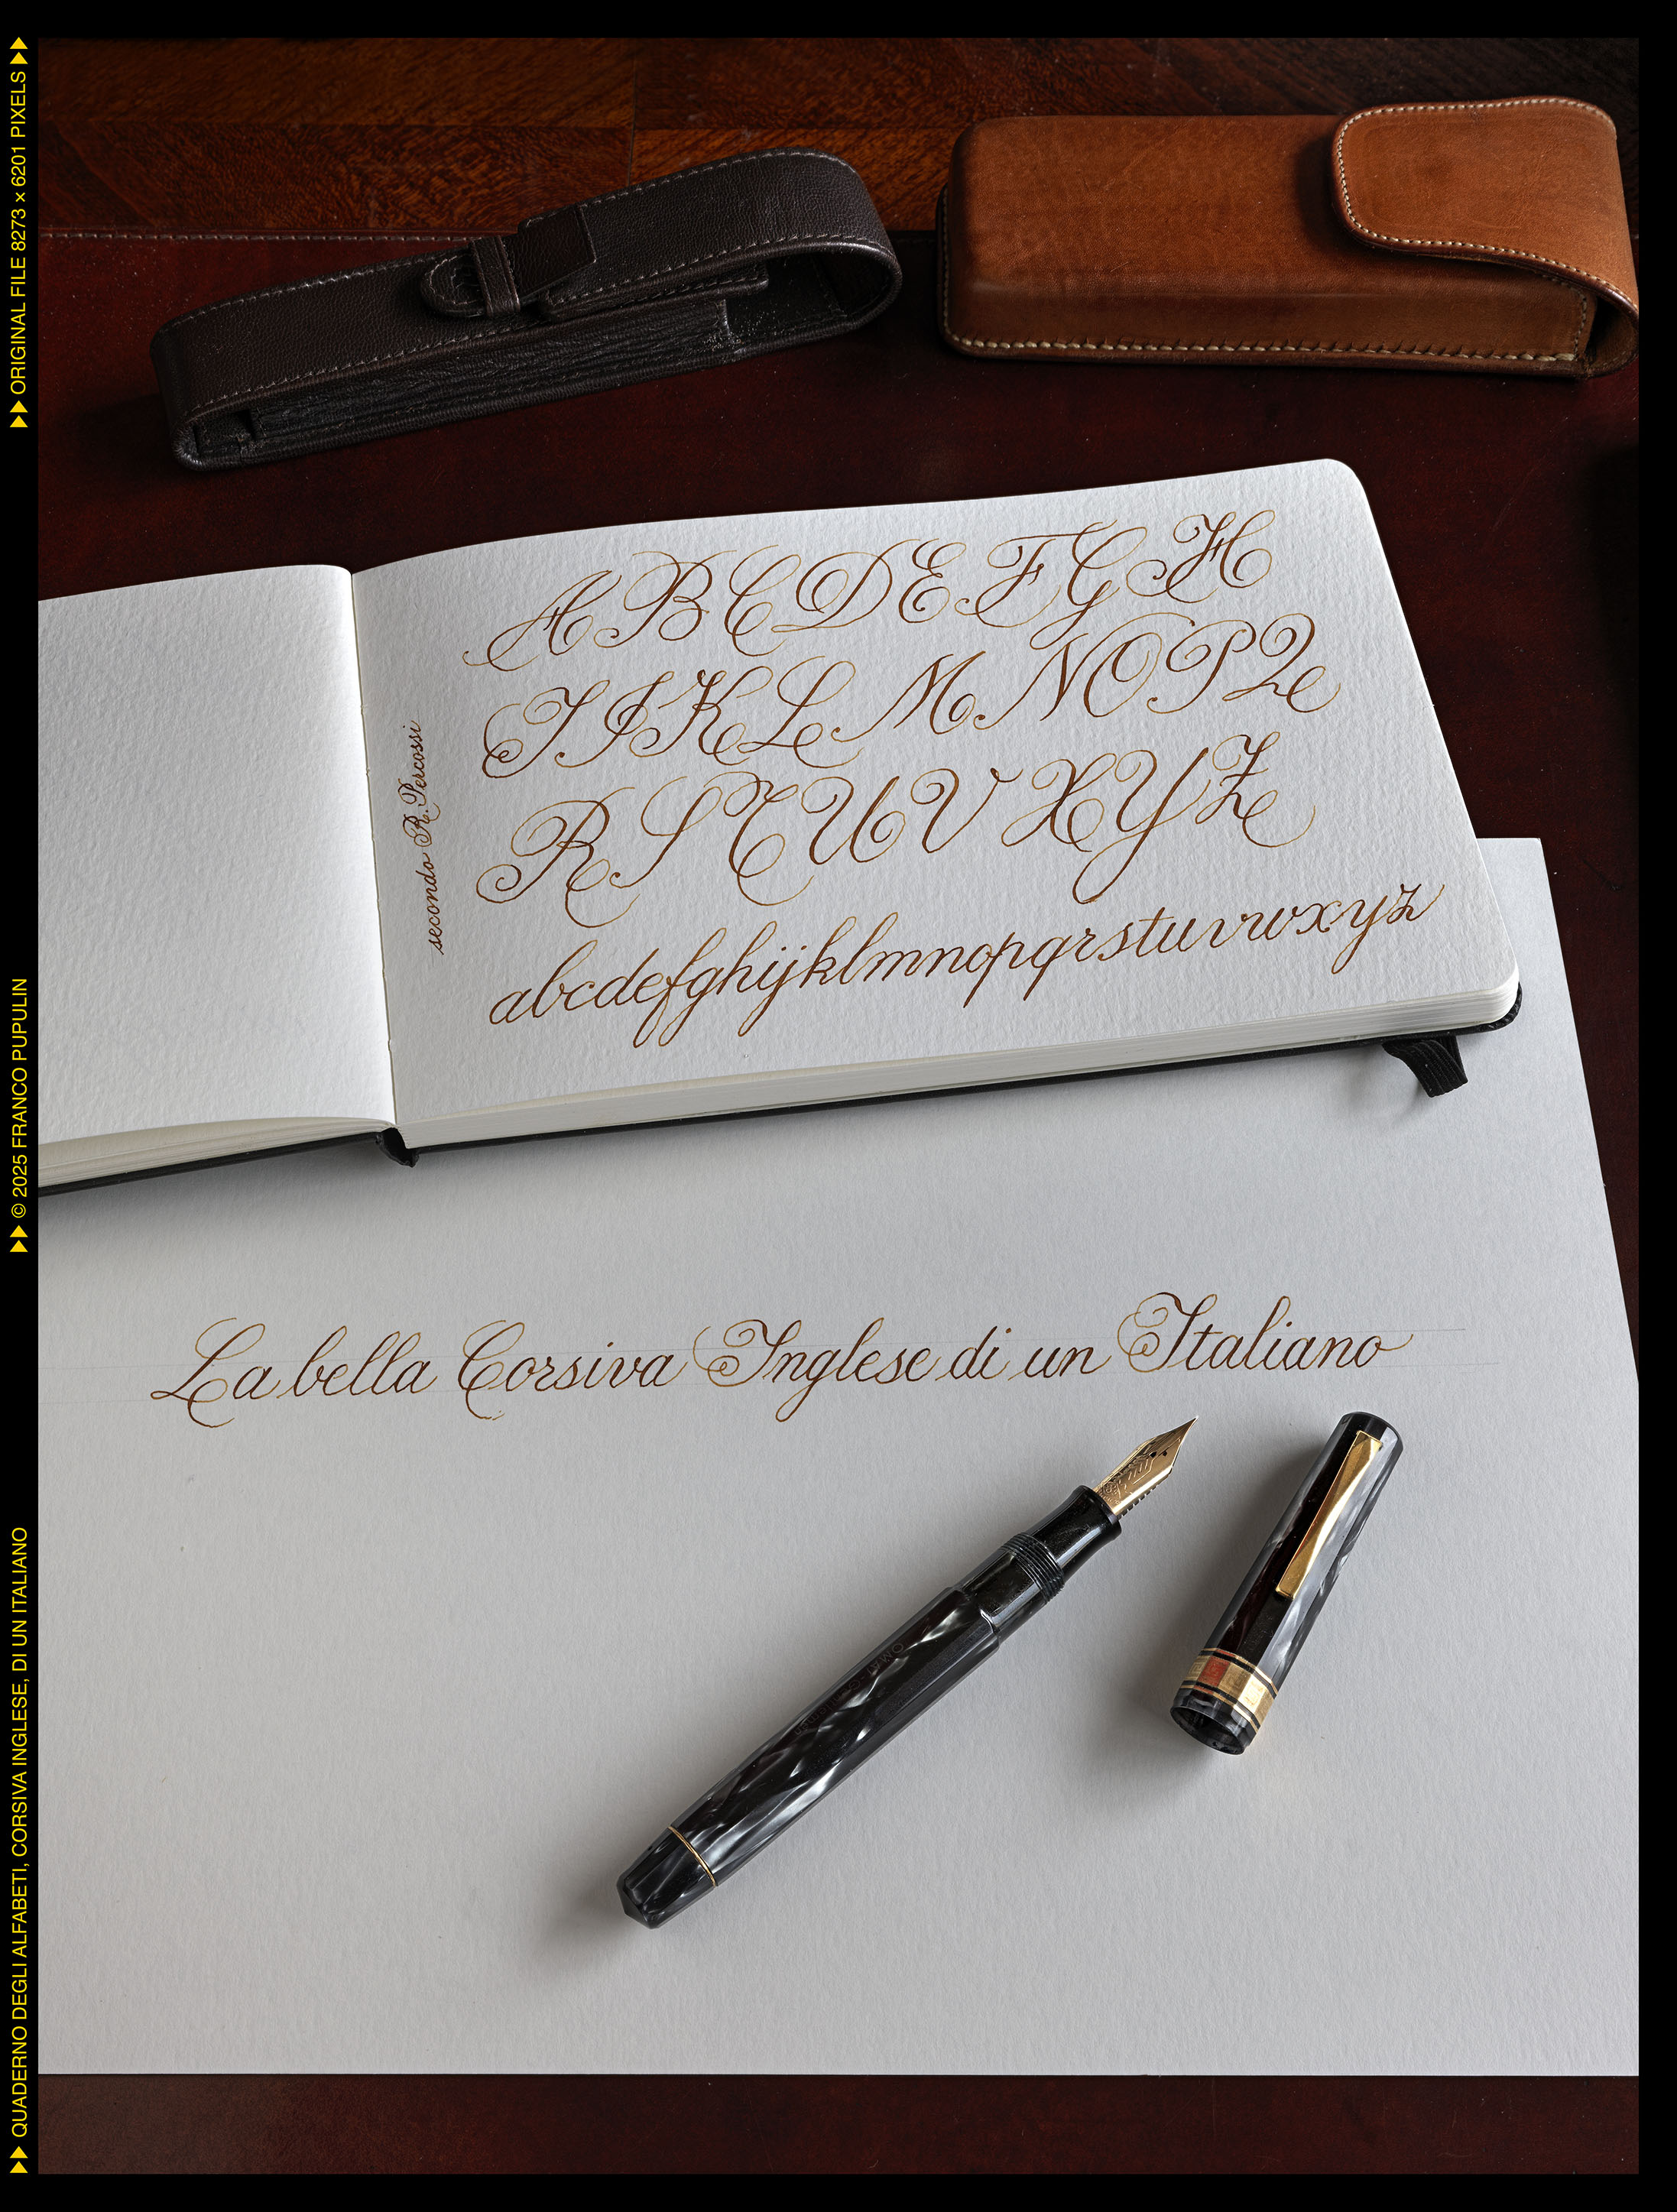 ORIGINAL FILE 8273 × 6201 PIXELS
© 2025 FRANCO PUPULIN
QUADERNO DEGLI ALFABETI, CORSIVA INGLESE, DI UN ITALIANO
secondo R. Percossi
A B C D E F G H
I J K L M N O P Q
R S T U V X Y Z
abcdefghijklmnopqrstuvwxyz
La bella Corsiva Inglese di un Italiano